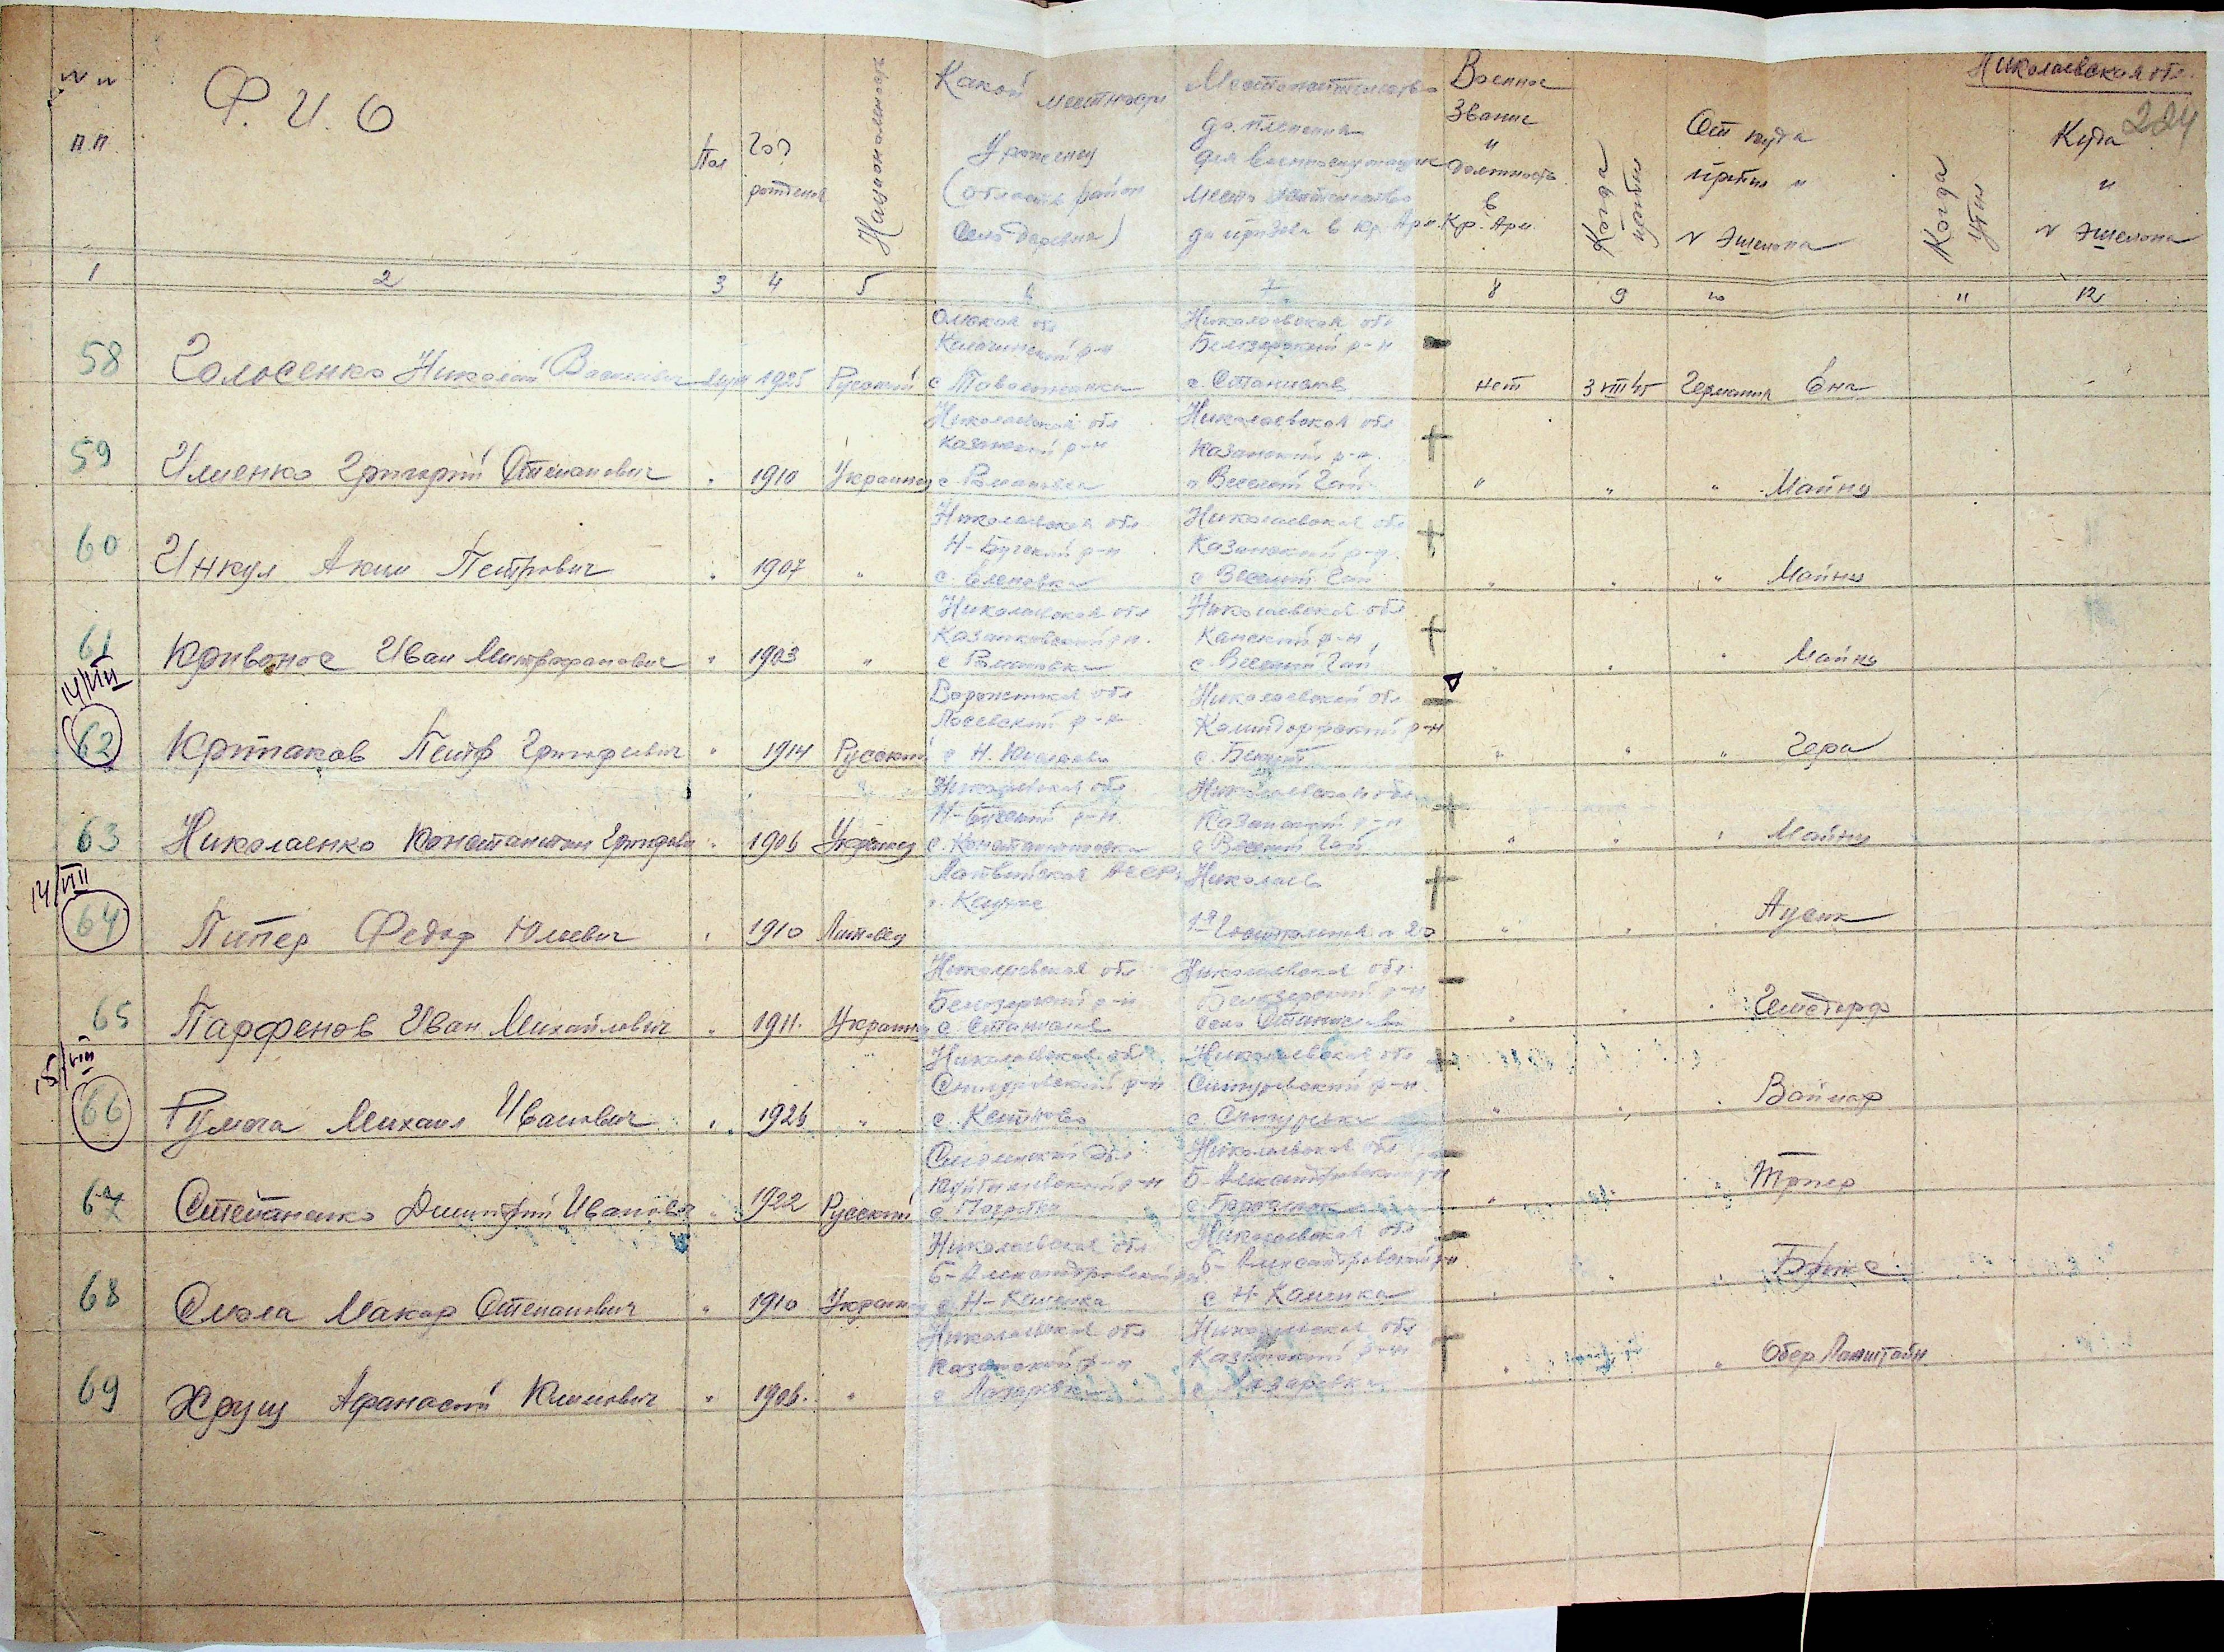 Николаевская обл.
224
№ №
п.п
Ф. И. О
Пол
Год
рождения
Национальность
Какой местности
Уроженец
(область район
село деревня)
Местожительство
до пленения
для военнослужащих
место жительства
до призова в Кр. Арм.
Военное
Звание
и
должность
в
Кр. Арм.
Когда
прибыл
От куда
прибыл и
№ Эшелона
Когда
убыл
Куда
и
№ Эшелона
1 2 3 4 5 6 7 8 9 10 11 12
Омская обл Николаевская обл
р-н Белозерский р-н -
58 Голосенко Николай Васильевич муж 1925 Русский с. с. Станислав нет 3 VIII 45 Германия Ена -
Николаевская обл Николаевская обл
Казанский р-н Казанский р-н +
59 Илиенко Григорий Степанович " 1910 Украинец с. Романовка с Веселый Гай " " " Майнц
Николаевская обл Николаевская обл
Н-Бугский р-н Казанский р-н +
60 Инкул Аким Петрович " 1907 " с. Еленовка с Веселый Гай " " " Майнц
Николаевская обл Николаевская обл
Казанковский р-н. Канский р-н +
61 Кривонос Иван Митрофанович " 1903 " с Романовка с. Веселый Гай " " " Майнц
14/VIII
Воронежская обл Николаевской обл -
Лосевский р-н р-н
62 Петр Григорьевич " 1914 Русский с Н. с. " " " Гера
Николаевская обл Николаевская обл
Н-Бугский р-н Казанский р-н +
63 Николаенко Константин " 1906 Украинец с. Константиновка с Веселый Гай " " " Майнц
14/VIII
Николаев +
64 Пипер Федор Юлевич " 1910 Литовец 1я 20 " " "
Николаевская обл Николаевская обл -
Белозерский р-н Белозерский р-н
65 Парфенов Иван Михайлович " 1911. Украинец с Станислав село Станислав " " "
15/VIII
Николаевская обл Николаевская обл +
Снигиревский р-н Снигиревский р-н
66 Михаил Иванович " 1926 " с. с. " " " Ваймар
Смоленская обл Николаевская обл -
р-н Б-Александровский р-н
67 Степаненко Дмитрий Иванович " 1922 Русский с с. " " "
Николаевская обл Николаевская обл -
Б-Александровский р-н Б-Александровский р-н
68 Смола Макар Степанович " 1910 Украинец с Н-Каменка с Н Каменка " " "
Николаевская обл Николаевская обл +
Казанский р-н Казанский р-н
69 Хрущ Афанасий Климович " 1906. " с Лазаревка с Лазаревка " " " Обер